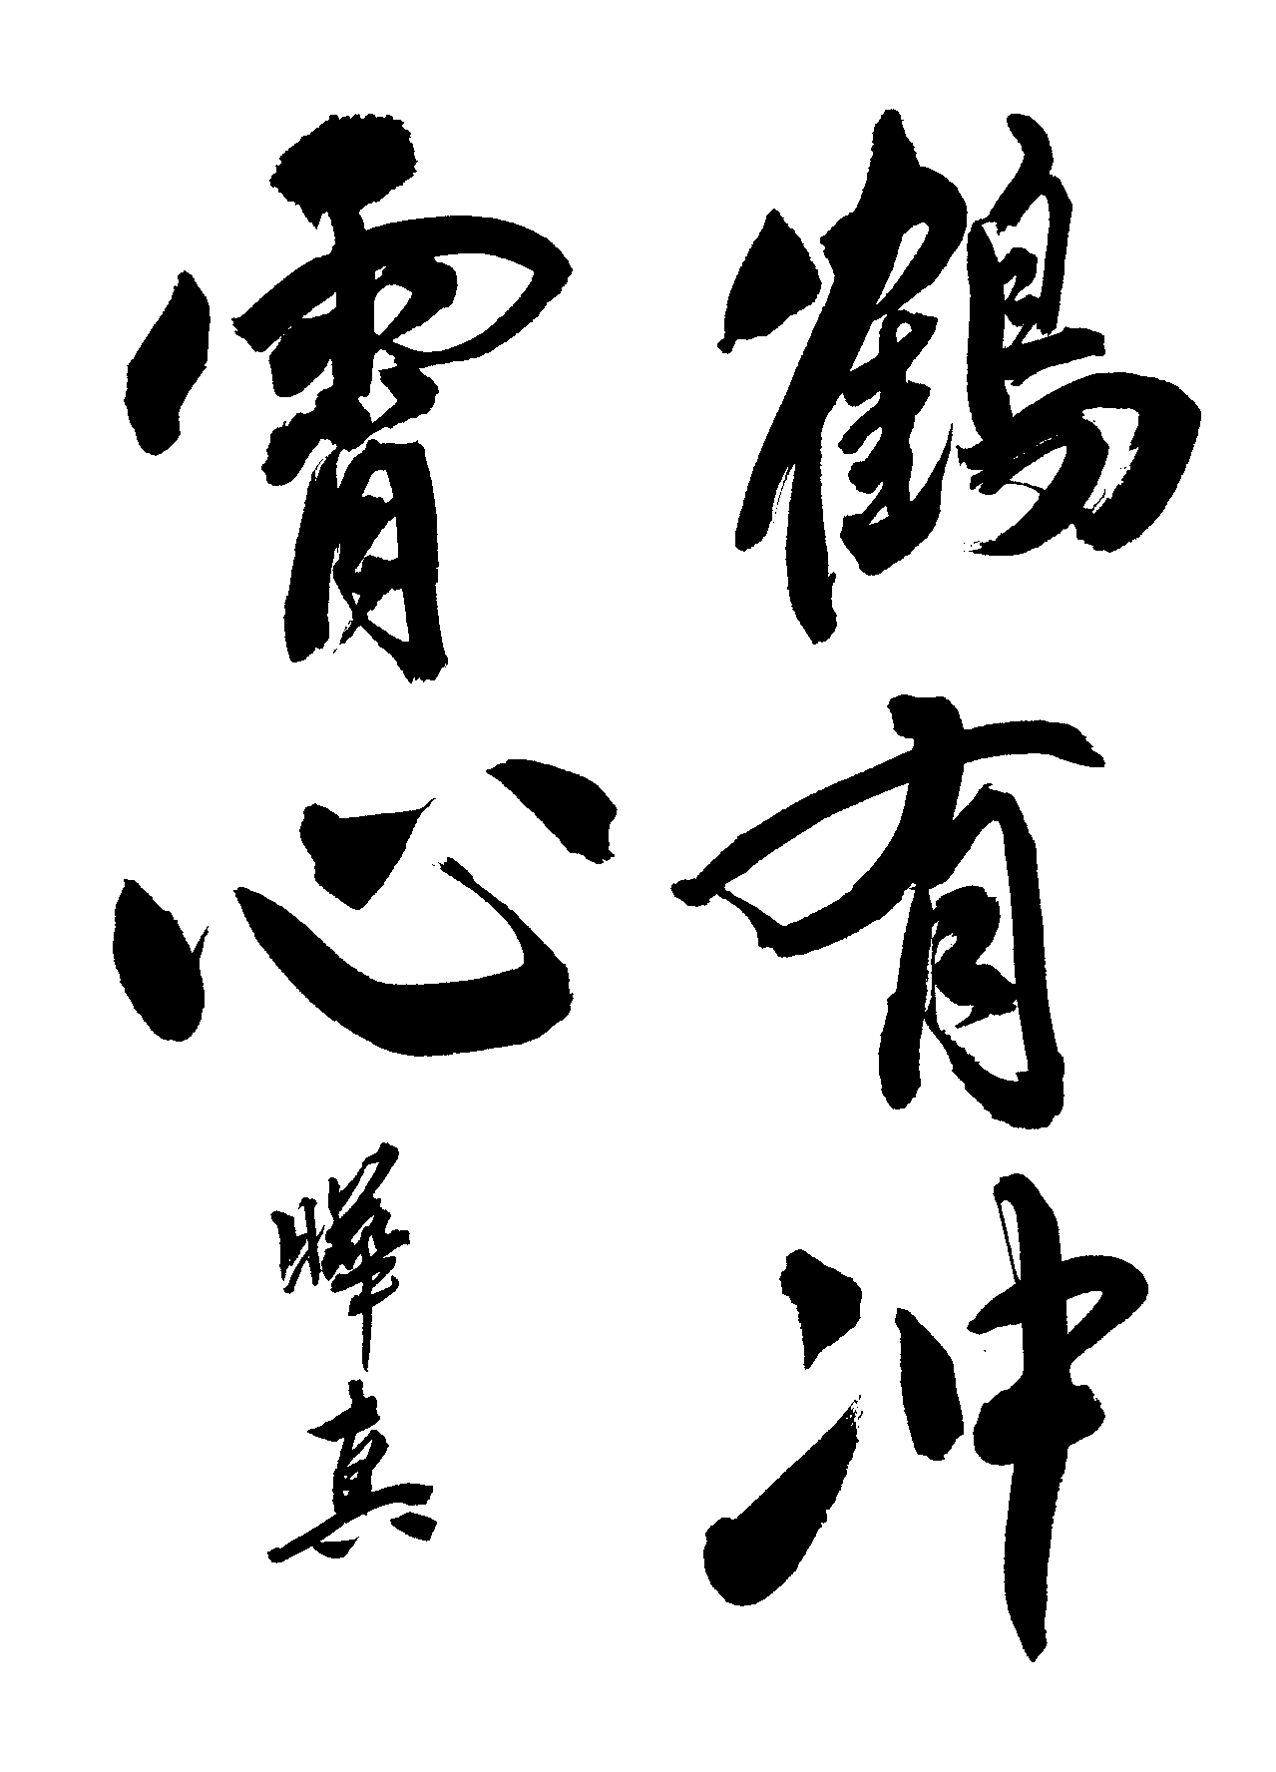 鶴有冲
霄心
曄真